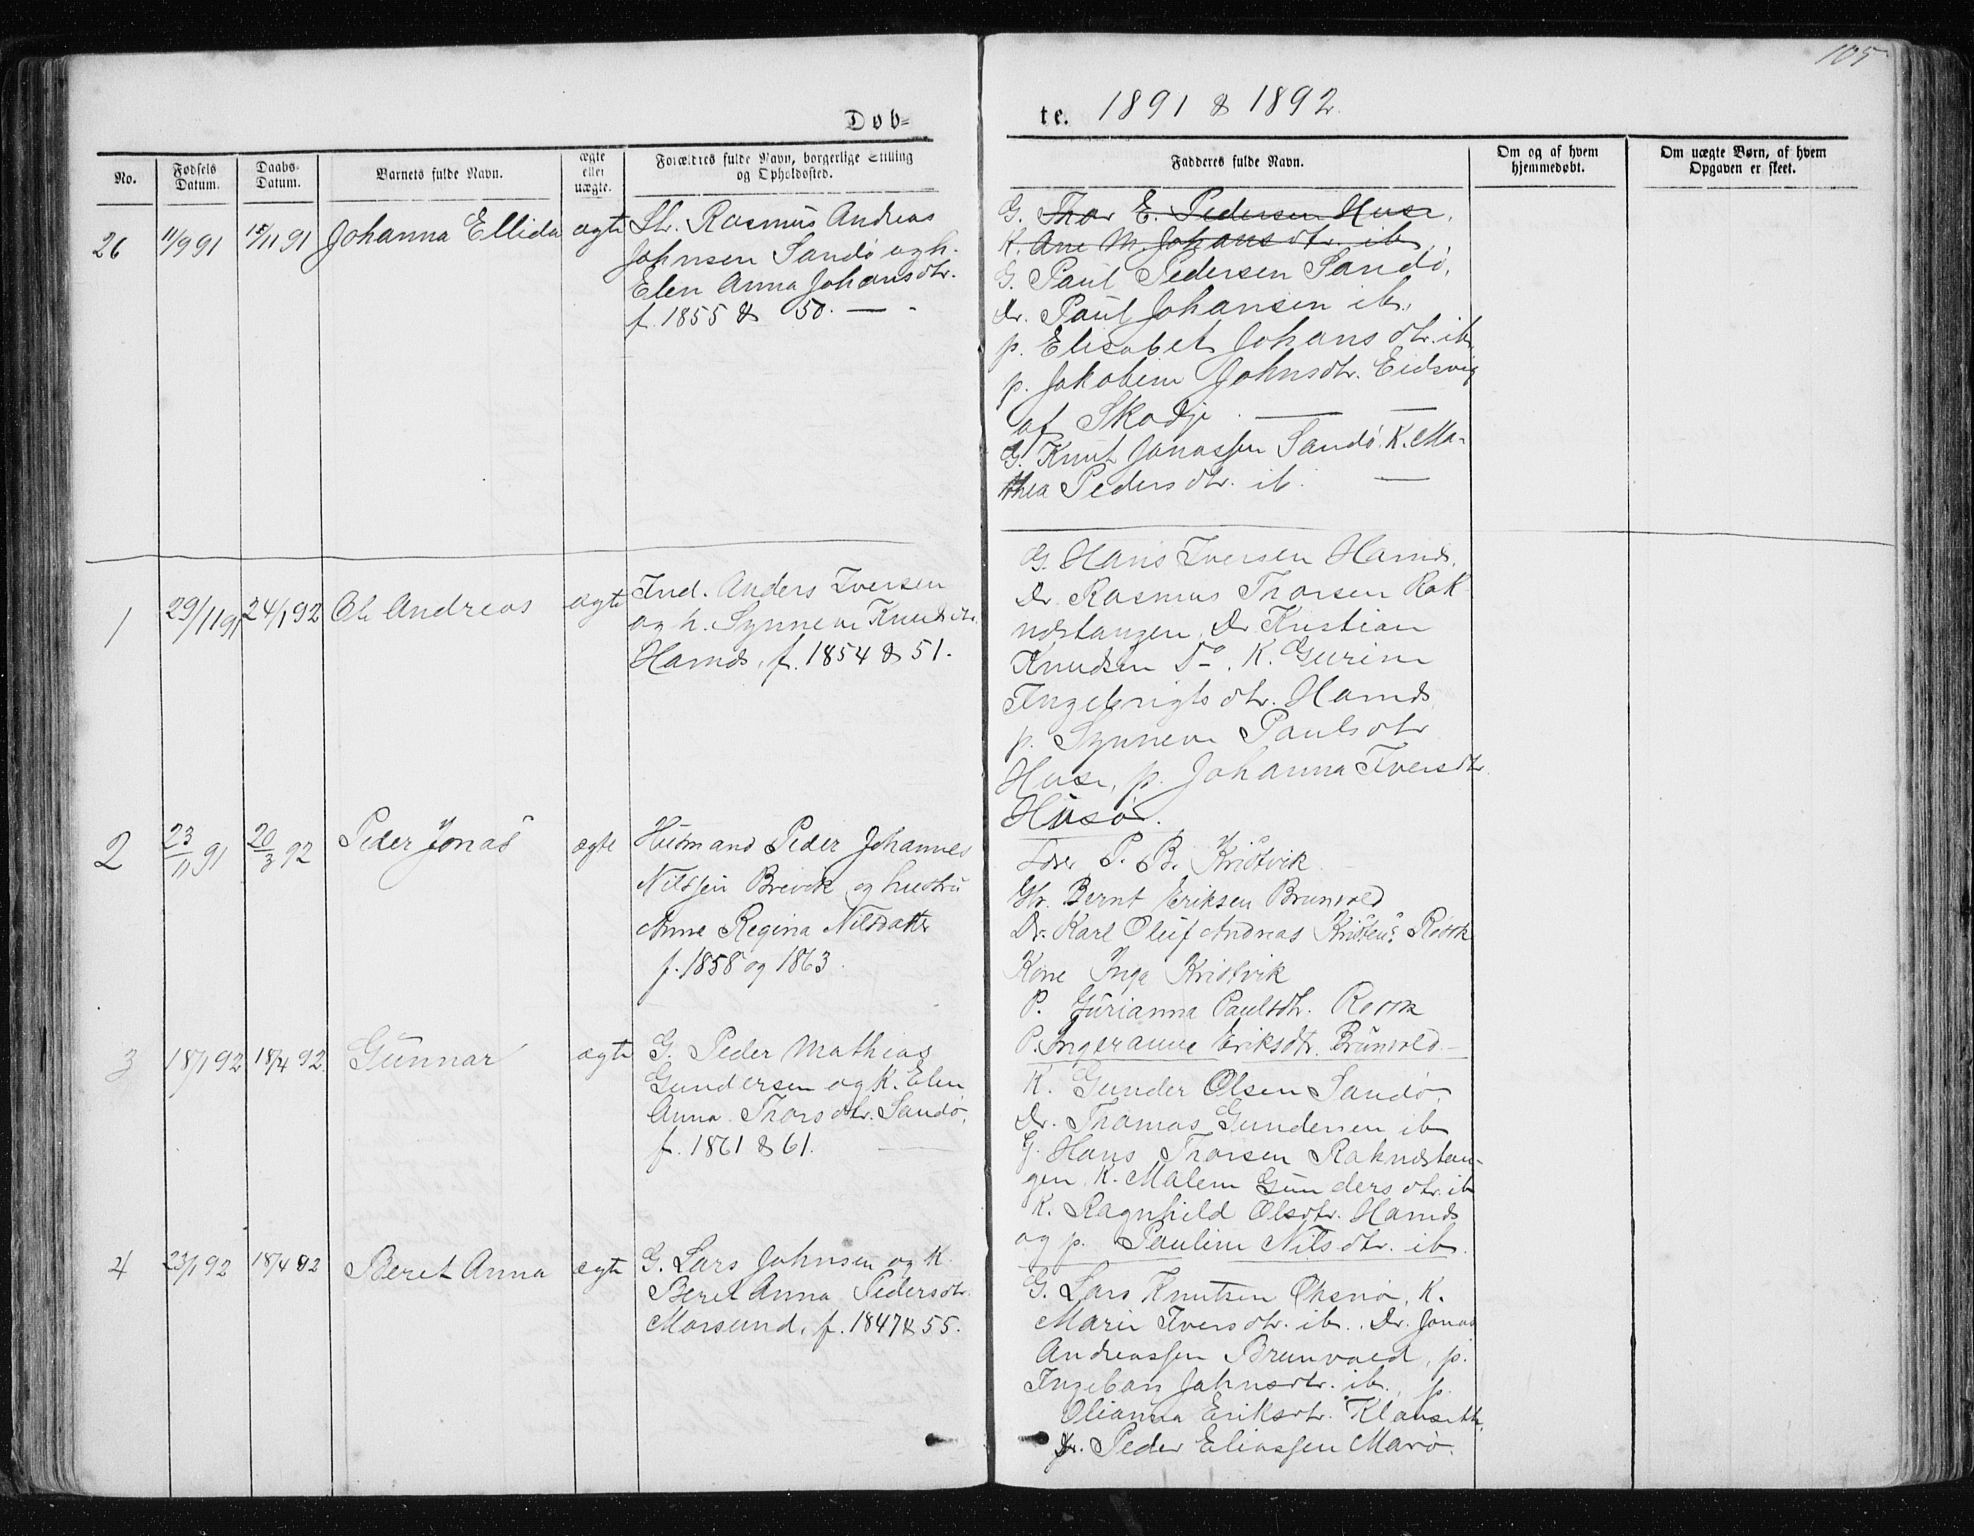 105
Døb=
te. 1891 & 1892.
No.
Fødsels Datum.
Daabs- Datum.
Barnets fulde Navn.
ægte eller uægte.
Forældres fulde Navn, borgerlige Stilling og Opholdssted.
Faddernes fulde Navn.
Om og af hvem hjemmedøbt.
Om uægte Børn, af hvem Opgaven er skeet.
26 11/9 91 15/11 91 Johanna Ellida ægte Str. Rasmus Andreas
Johnsen Sandø og h.
Elen Anna Johansdtr.
f. 1855 & 50. —
G. Thor E. Pedersen Huse,
K. Ane M. Johansdtr. ib.
G. Paul Pedersen Sandø,
Dr. Paul Johansen ib.,
p. Elisabet Johansdtr. ib
p. Jakobine Johnsdtr. Eidsvig
af Skodje. — —
G. Knut Jonassen Sandø. K. Ma-
thea Pedersdtr. ib. —
1 29/11 91 24/1 92 Ole Andreas ægte Ind. Anders Iversen
og h. Synneve Knudsdtr.
Harnds, f. 1854 & 51.
G. Hans Iversen Harnds,
Dr. Rasmus Thorsen Rak
ndstangen, Dr. Kristian
Knudsen Do. K. Gurine
Ingebrigtsdtr. Harnds,
p. Synneve Paulsdtr
Huse, p. Johanna Iversdtr.
Husø.
2 23/11 91 20/3 92 Peder Jonas ægte Husmand Peder Johannes
Nilssen Brevik og hustru
Anne Regina Nilsdatter
f. 1858 og 1863.
P. B. Kristvik
Gbr. Bernt Eriksen Brunvold
Dr. Karl Oluf Andreas Kristens. Røsok
Kone Inga Kristvik
P. Gurianna Paulsdtr. Røsok
P. Ingeranne Eriksdtr. Brunvold —
3 18/1 92 18/4 92 Gunnar ægte G. Peder Mathias
Gundersen og K. Elen
Anna Thorsdtr. Sandø,
f. 1861 & 61. —
K. Gunder Olsen Sandø,
Dr. Thomas Gundersen ib
G. Hans Thorsen Rakndstan-
gen, K. Malene Gundersdtr. ib
K. Ragnhild Olsdtr. Harnds
og p. Pauline Nilsdtr. ib.
4 23/1 92 18/4 92 Beret Anna ægte G. Lars Johnsen og K.
Beret Anna Pedersdtr.
Morsund, f. 1847 & 55.
G. Lars Knutsen Oksnø, K.
Marie Iversdtr. ib., Dr. Jonas
Andreassen Brunvold, p.
Ingebor Johnsdtr. ib., p.
Olianna Eriksdtr. Klauseth,
Dr. Peder Eliassen Marø.